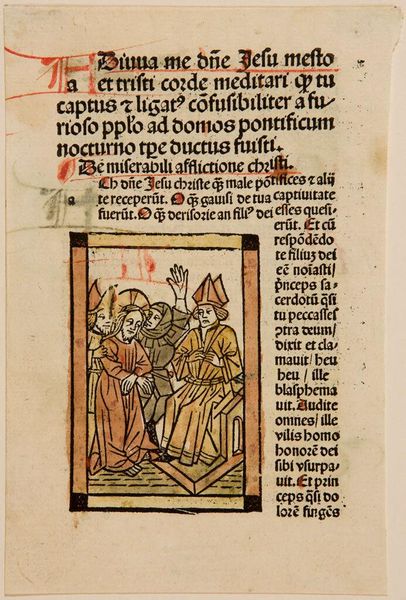 Adiuua me dn̄e Jesu mesto
et tristi corde meditari qƺ tu
a
captus ⁊ ligatꝰ cōfusibiliter a fu-
rioso ppl̄o ad domos pontificum
nocturno tp̄e ductus fuisti.
De miserabili afflictione christi.
Ch dn̄e Jesu christe q̄ȝ male pōtifices ⁊ alij
a
te receperūt. O q̄ȝ gauisi de tua captiuitate
fuerūt. O q̄ȝ derisorie an filiꝰ dei
esses quesi-
erūt. Et cū
respōdēdo
te filiuȝ dei
eē noīasti/
p̄nceps sa-
cerdotū q̄si
tu peccasses
ptra deum/
dixit et cla-
mauit/ heu
heu / ille
blasphema
uit. Audite
omnes/ ille
vilis homo
honorē dei
sibi vsurpa-
uit. Et prin
ceps q̄si do
lorē fingēs